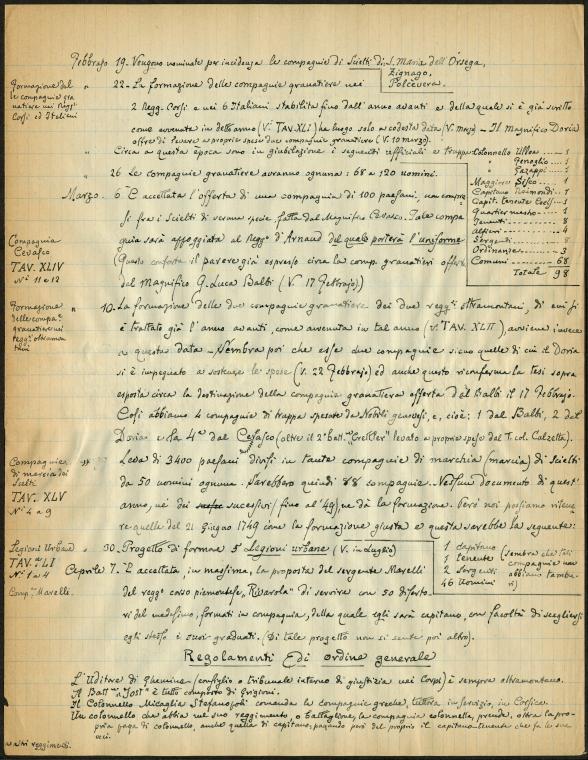 Febbrajo 19. Vengono nominate per incidenza le compagnie di Scielti di S. Maria dell'Orsega,
Zignago,
Polcevera.
Formazione del
le compagnie gra
natiere nei Regg.ti
Corsi ed Italiani
" 22. La formazione delle compagnie granatiere nei
2 Regg. Corsi e nei 6 Italiani stabilita fino dall'anno avanti e della quale si è già scritto
come avvenuta in dett'anno (V. TAV. XLI) ha luogo solo a codesta data (V. marzo) - Il Magnifico Doria
offre di levare a proprie spese due compagnie granatiere (V. 10 marzo).
" Circa a questa epoca sono in giubilazione i seguenti ufficiali e truppa
Colonnello Ulloa --- 1
Genoglio --- 1
Pazappi --- 1
Maggiore Sesco --- 1
Capitano Raimondi -- 1
Capit. tenente --- 1
Quartiermastro --- 1
Tenenti --- 8
Alfieri --- 4
Sergenti
Ordinanze --- 3
Comuni --- 68
Totale 98
" 26 Le compagnie granatiere avranno ognuna : 68 a 120 uomini.
Marzo. 6 È accettata l'offerta di una compagnia di 100 paesani, ma compre
si fra i Scielti di veruna specie, fatta dal Magnifico Cevasco. Tale compa
gnia sarà appoggiata al Regg.to d'Arnaud del quale porterà l'uniforme
Compagnia
Cevasco
TAV. XLIV
N.i 11 e 12
Questo conforta il parere già espresso circa la comp. granatieri offerta
dal magnifico G. Luca Balbi (V. 17 Febbrajo)
Formazione
delle compag.e
granatiere nei
regg.ti oltramon
tani
10. La formazione delle due compagnie granatiere dei due regg.ti oltramontani, di cui si
è trattato già l'anno avanti, come avvenuta in tal anno (V. TAV. XLII), avviene invece
a questa data - Sembra poi che esse due compagnie siano quelle di cui il Doria
si è impegnato a sostenere le spese (V. 22 Febbrajo) ed anche questo riconferma la tesi sopra
esposta circa la destinazione della compagnia granatiera offerta dal Balbi il 17 Febbrajo.
Così abbiamo 4 compagnie di truppa spesate da Nobili genovesi, e, cioè : 1 dal Balbi, 2 del
Doria e la 4a dal Cevasco (oltre il 2° batt.ne "Crettler" levato a proprie spese dal T. col. Calzetta).
Compagnie
di marcia dei
Scelti
TAV. XLV
N.i 4 a 9
" Leva di 3400 paesani divisi in tante compagnie di marchia (marcia) di Scielti
da 50 uomini ognuna. Sarebbero quindi 88 compagnie. Nessun documento di quest'
anno, nè dei successivi (fino al '49), ne dà la formazione. Però noi possiamo ritene
re quella del 21 Giugno 1749 come la formazione giusta e questa sarebbe la seguente :
1 Capitano
1 Tenente
2 Sergenti
46 Uomini
(sembra che tali
compagnie non
abbiano tambu-
ri)
Legioni Urbane
TAV. LI
N.i 1 a 4
" 30. Progetto di formare 5 Legioni urbane (V. in Luglio)
Comp.a Marelli.
Aprile 7. È accettata, in massima, la proposta del sergente Marelli
del regg.to corso piemontese, "Rivarola" di servire con 50 diserto-
ri del medesimo, formati in compagnia, della quale egli sarà capitano, con facoltà di scegliersi
egli stesso i suoi graduati. (Di tale progetto non si sente poi altro).
Regolamenti Ed ordine generale
L'Uditore di Ghemine (consiglio o tribunale interno di giustizia nei Corpi) è sempre oltramontano.
Il Batt.ne "a Jost" è tutto composto di Grigioni.
Il Colonnello Micaglia Stefanopoli comanda le compagnie greche, tuttora in servizio, in Corsica.
Un colonnello che abbia nel suo reggimento o battaglione, la compagnia colonnella, prende, oltre la pro-
pria paga di colonnello, anche quella di capitano, pagando però del proprio il capitano-tenente che fa le sue
veci.
reggimenti.